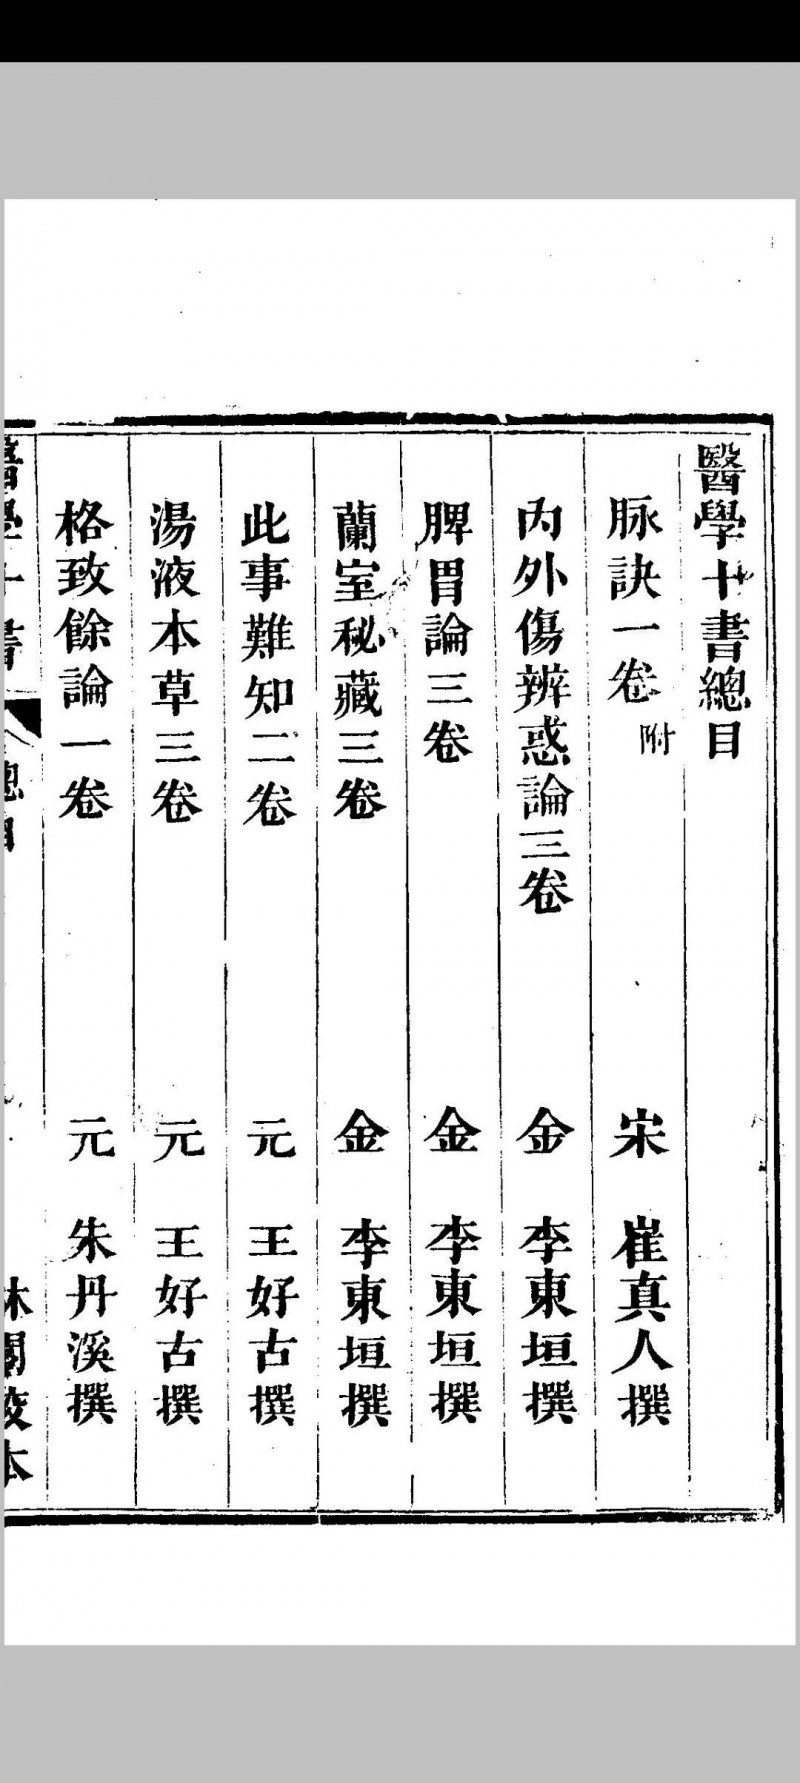 醫學十書總目
脉訣一卷 附 宋 崔真人撰
內外傷辨惑論三卷 金 李東垣撰
脾胃論三卷 金 李東垣撰
蘭室秘藏三卷 金 李東垣撰
此事難知二卷 元 王好古撰
湯液本草三卷 元 王好古撰
格致餘論一卷 元 朱丹溪撰
醫學十書 總目